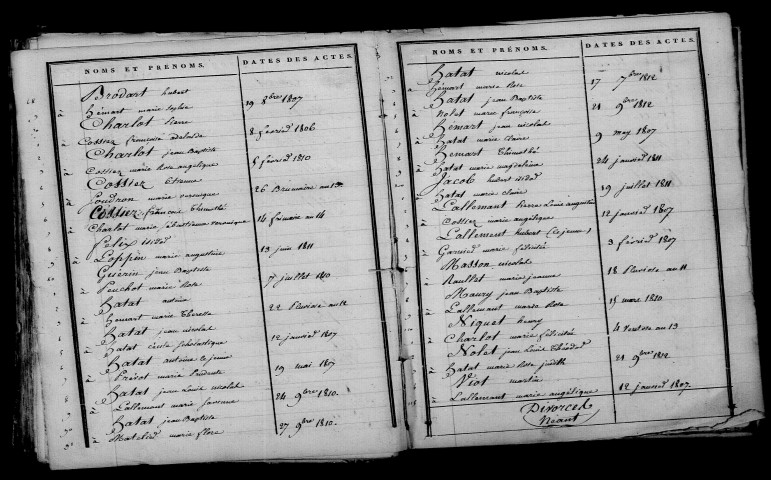 NOMS ET PRENOMS. DATES DES ACTES.
Brodart hubert
à hémart marie sophie 19 8bre 1807
Charlot Pierre
à Cossiez françoise adelaïde 8 février 1806
Charlot jean Baptiste
à Cossiez marie Rose angélique 5 février 1810
Cossiez Etienne
à Goudron marie veronique 26 Brumaire au 13
Cossiez françois Thimothé
à Charlot marie sébastienne veronique 14 frimaire au 14
Felix isidor
à Loppin marie augustine 13 juin 1811
Guérin jean Baptiste
à Peuchot marie Rose 7 juillet 1810
hatat antoine
à hémart marie Therese 22 Pluviose an 12
hatat jean nicolas
à hatat cecile scholastique 12 janvier 1807
hatat antoine le jeune
à Prévot marie Prudente 19 mai 1807
hatat jean Louis nicolas
à Lallement marie 24 9bre 1810
hatat jean Baptiste
à marie flore 27 9bre 1810.
NOMS ET PRÉNOMS. DATES DES ACTES.
hatat nicolas
à hémart marie Rose 17 7bre 1812
hatat jean Baptiste
à Nolet marie françoise 21 9bre 1812
hemart jean nicolas
à hatat marie Claire 9 may 1807
hemart Thimothé
à hatat marie magdeleine 24 janvier 1811
Jacob hubert isidor
à hatat marie claire 19 juillet 1811
Lallemant Pierre Louis augustin
à Cossiez marie angélique 12 janvier 1807
Lallement hubert (le jeune)
à marie felicité 3 février 1807
Masson nicolas
à Roullet marie jeanne 18 Pluviose an 11
Maury jean Baptiste
à Lallemant marie Rose 15 mars 1810
Niquet henry
à Charlot marie félicité 4 Ventose an 13
Nolet jean Louis Théodore
à hatat marie Rose judith 21 9bre 1812
Viot martin
à Lallemant marie angélique 12 janvier 1807.
Divorces
Néant